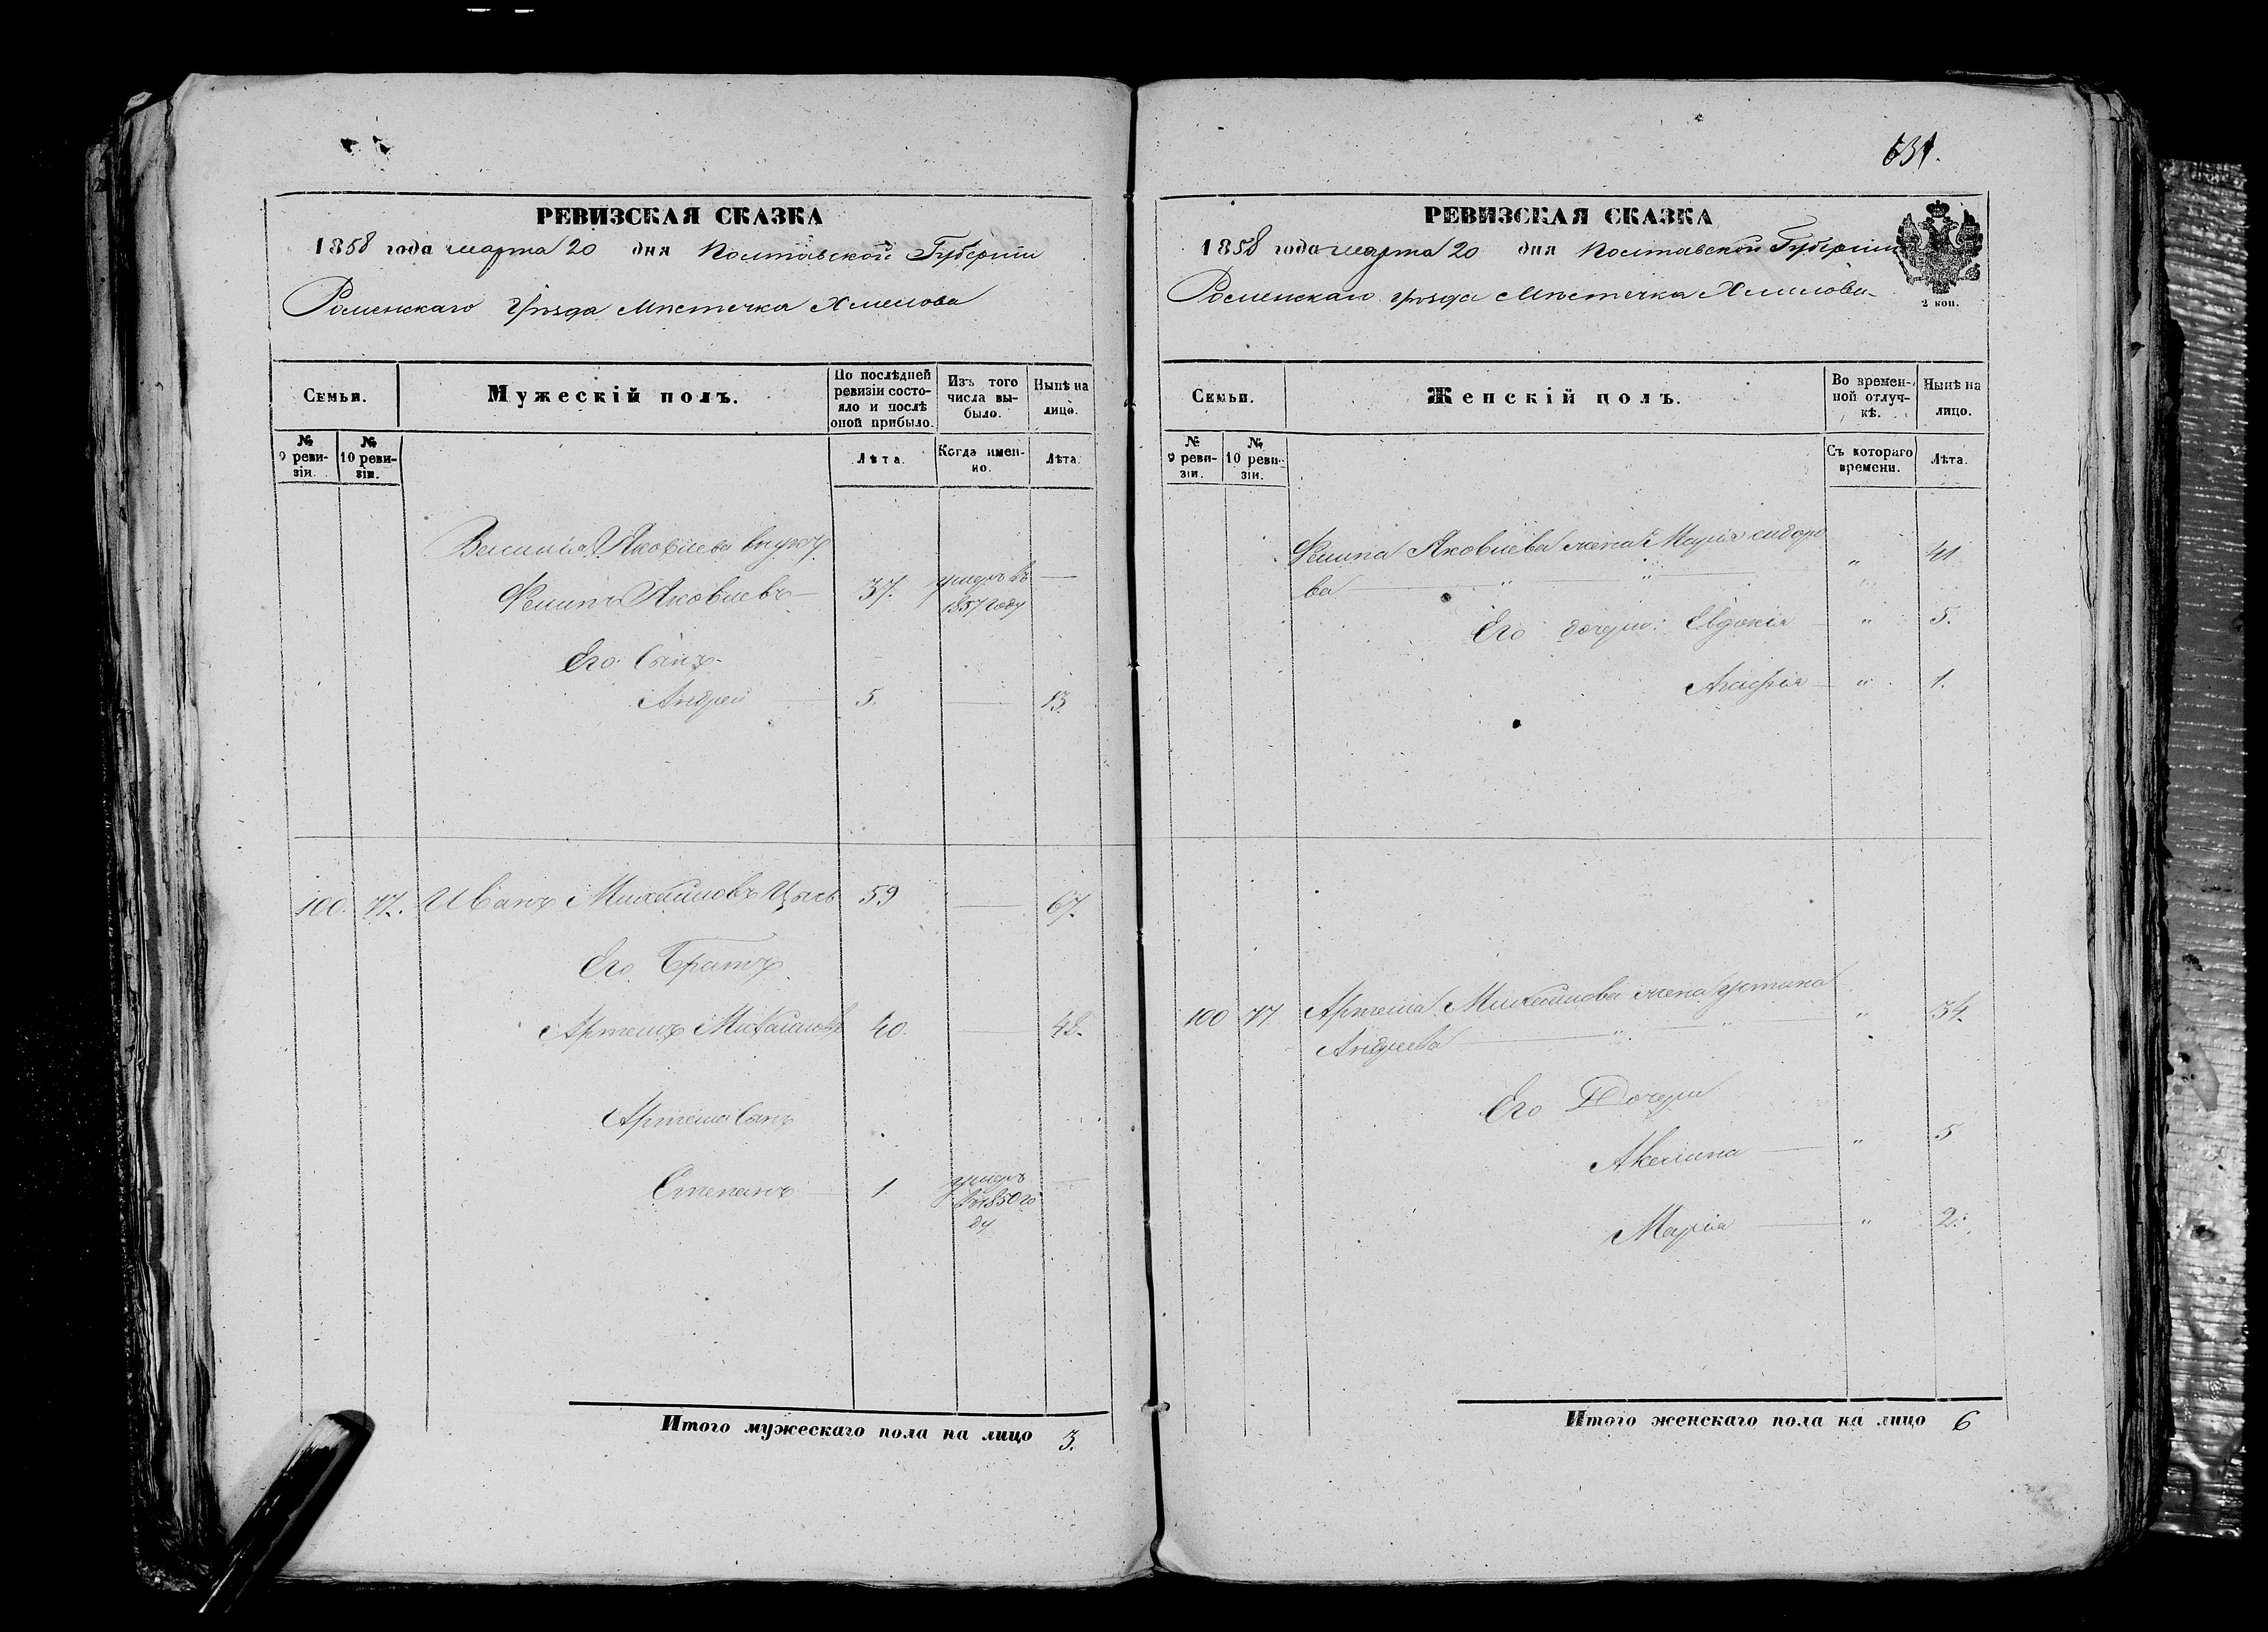 631.
РЕВИЗСКАЯ СКАЗКА
1858 года марта 20 дня Полтавской Губерніи
Роменскаго Уѣзда Мѣстечка Хмелова
Семьи.
Мужескій полъ.
По послѣдней ревизіи состояло и послѣ оной прибыло.
Изъ того числа выбыло.
Нынѣ на лицо.
№ 9 ревизіи.
№ 10 ревизіи.
Лѣта.
Когда именно.
Лѣта.
Василія Яковлева внукъ
Филипъ Яковлевъ 37. умеръ въ 1857 году
Его Сынъ
Андрей 5. 13.
100. 77. Иванъ Михайловъ Цысь 59 67.
Его Братъ
Артемъ Михайловъ 40. 48.
Артема Сынъ
Степанъ 1. умеръ въ 1850 году
Итого мужескаго пола на лицо 3.
РЕВИЗСКАЯ СКАЗКА
1858 года марта 20 дня Полтавской Губерніи
Роменскаго уѣзда Мѣстечка Хмелова
2 коп.
Семьи.
Женскій полъ.
Во временной отлучкѣ.
Нынѣ на лицо.
№ 9 ревизіи.
№ 10 ревизіи.
Съ котораго времени.
Лѣта.
Филипа Яковлева жена Марія сидоро
ва " " " 41
Его дочери: Евдокія " 5.
Агафія " 1.
100 77 Артема Михайлова жена Устина
Андреева " " " 34.
Его Дочери
Акелина " 5
Марія " 2.
Итого женскаго пола на лицо 6